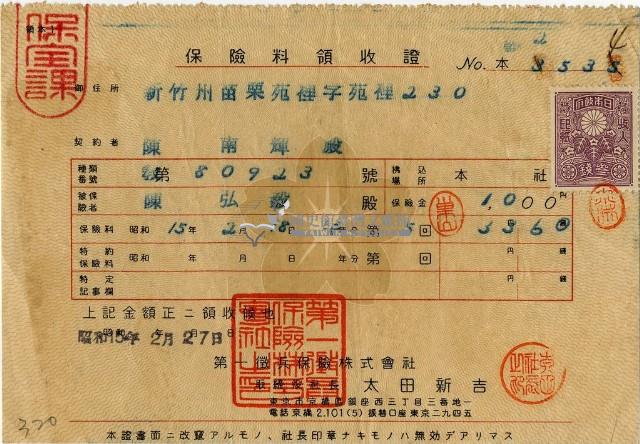 領本1
保全課
保險料領收證
No. 本 3535
御住所 新竹州苗栗苑裡字苑裡230
契約者 陳南輝殿
種類番號 第80923號 拂込場所 本社
被保險者 陳弘毅殿 保險金 1,000
保險料 昭和15年2月8日 年分 第5回 3360
特約保險料 昭和 年 月 日 年分 第 回 円 錢
特定記事欄 円 錢
上記金額正ニ領收候也
昭和15年2月27日
第一徵兵保險株式會社
取締役社長 太田新吉
東京市京橋區銀座西三丁目三番地一
電話京橋2.101(5)振替口座東京二九四五
本證書面ニ改竄アルモノ、社長印章ナキモノハ無効デアリマス
320